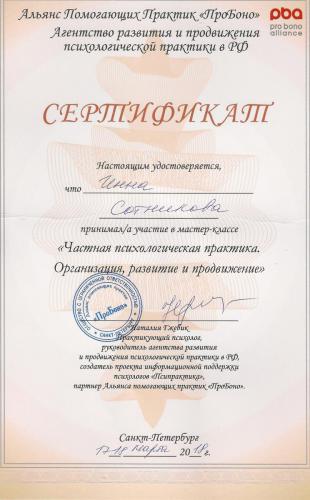 Альянс Помогающих Практик «ПроБоно»
Агентство развития и продвижения
психологической практики в РФ
pba
pro bono
alliance
СЕРТИФИКАТ
Настоящим удостоверяется,
что Инна
Сотникова
принимал/а участие в мастер-классе
«Частная психологическая практика.
Организация, развитие и продвижение»
«ПроБоно»
Наталия Гжевик
Практикующий психолог,
руководитель агентства развития
и продвижения психологической практики в РФ,
создатель проекта информационной поддержки
психологов «Псипрактика»,
партнер Альянса помогающих практик «ПроБоно».
Санкт-Петербург
17-18 марта 2018г.